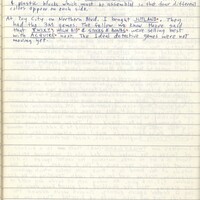 & plastic blocks which must be assembled so that four different
colors appear on each side.
At Toy City on Northern Blvd. I bought JUTLAND. They
had the 3M games. The fellow we know there said
that TWIXT, and were selling best
with ACQUIRE next. The Ideal detective games were not
moving yet.